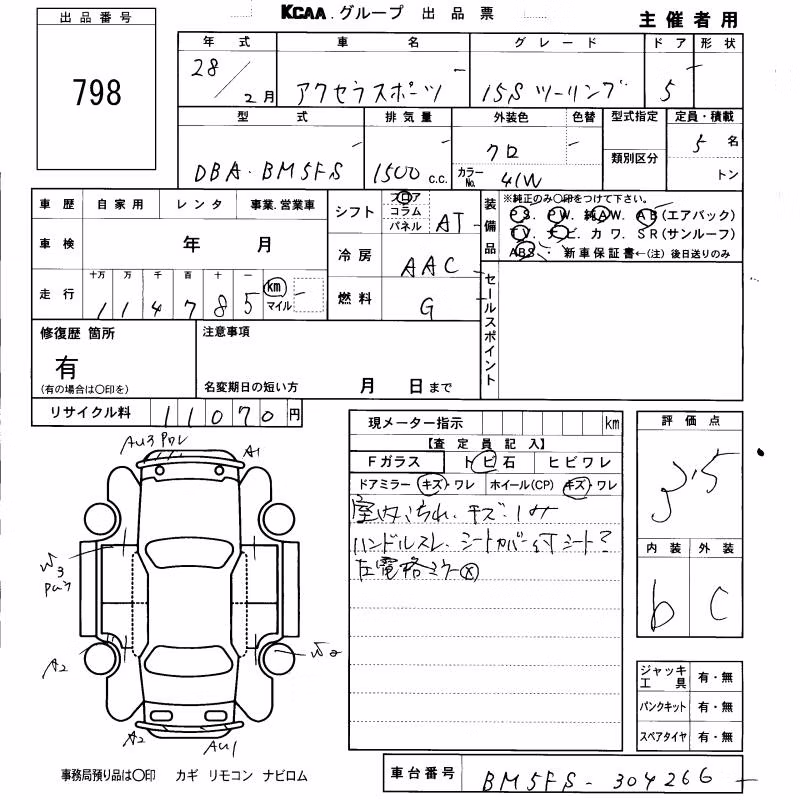 出品番号
798
KCAA.グループ 出品票
主催者用
年式 車名 グレード ドア 形状
28/2月 アクセラスポーツ 15S ツーリング 5
型式 排気量 外装色 色替 型式指定 定員・積載
DBA・BM5FS 1500c.c. クロ 5名
カラーNo. 41W 類別区分 トン
車歴 自家用 レンタ 事業.営業車
車検 年 月
走行 十万 万 千 百 十 一
114785 km マイル
シフト フロア コラム パネル AT
冷房 AAC
燃料 G
装備品 ※純正のみ〇印をつけて下さい。
PS. PW. 純AW. AB(エアバック)
TV. ナビ. カワ. SR(サンルーフ)
ABS・ 新車保証書←(注)後日送りのみ
セールスポイント
修復歴 箇所
有
(有の場合は〇印を)
注意事項
名変期日の短い方 月 日まで
リサイクル料 11070円
現メーター指示 km
【査定員記入】
Fガラス トビ石 ヒビワレ
ドアミラー キズ・ワレ ホイール(CP) キズ・ワレ
室内ごちれ、キズ・シミ
ハンドルスレ、シートカバー付シート?
左電格ミラー⊗
評価点
3.5
内装 外装
b C
ジャッキ工具 有・無
パンクキット 有・無
スペアタイヤ 有・無
AU3 A1
W3
A2 A2
AU1
事務局預り品は〇印 カギ リモコン ナビロム
車台番号 BM5FS-304266